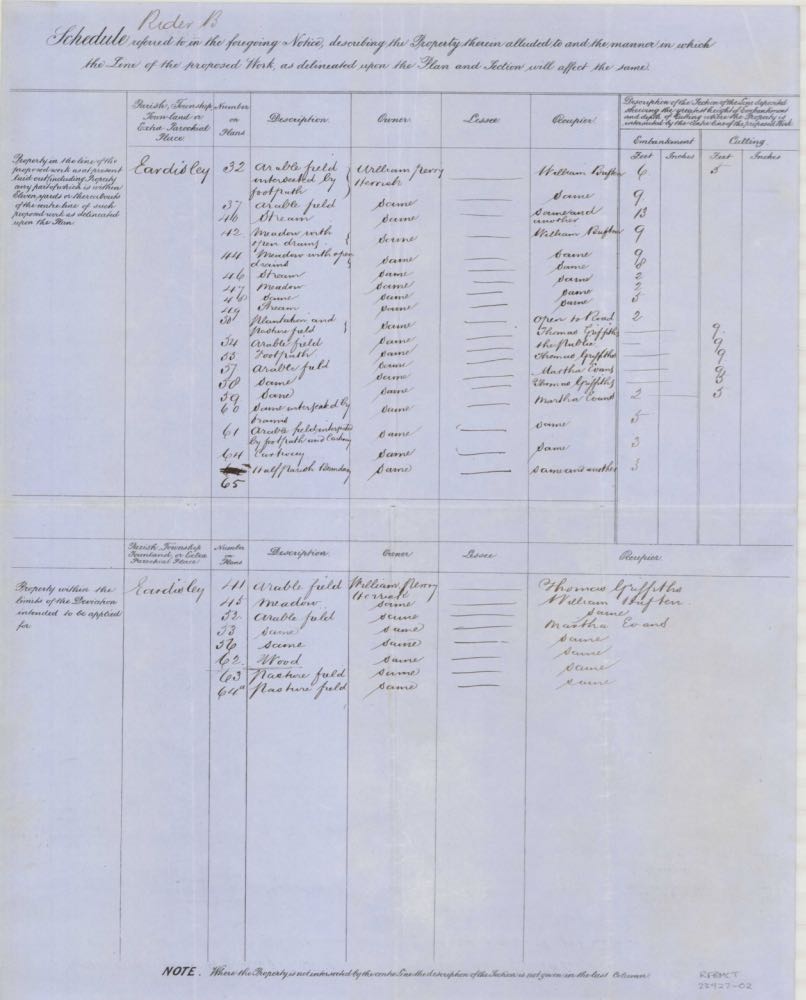 Rider B
Schedule referred to in the foregoing Notice, describing the Property therein alluded to and the manner in which
the Line of the proposed Work, as delineated upon the Plan and Section, will affect the same.
Parish, Township Townland or Extra Parochial Place. Number on Plans Description Owner Lessee Occupier Description of the Section of the Line deposited shewing the greatest height of Embankment and depth of Cutting where the Property is intersected by the Centre line of the proposed Work
Embankment Cutting
Feet Inches Feet Inches
Property in the line of the
proposed work as at present
laid out (including Property
any part of which is within
Eleven yards or thereabouts
of the centre line of such
proposed work as delineated
upon the Plan
Eardisley 32 Arable field William Perry William Bufton 6 5
intersected by
footpath
37 Arable field Same Same 9
40 Stream Same Same and another 13
42 Meadow with open drains Same William Bufton 9
44 Meadow with open drains Same Same 9
Same 8
46 Stream Same Same 2
47 Meadow Same Same 2
48 Same Same Same 5
49 Stream Same
50 Plantation and Pasture field Same Open to Road 2
Thomas Griffiths 9
54 Arable field Same the Public 9
55 Footpath Same Thomas Griffiths 9
57 Arable field Same Martha Evans
58 Same Same Thomas Griffiths
59 Same Same Martha Evans 2 5
60 Same intersected by Same
61 Arable field Same Same 5
by footpath and
64 Same Same 3
65 Half Parish Boundary Same Same and another 3
Parish Township Townland, or Extra Parochial Place Number on Plans Description Owner Lessee Occupier
Property within the
limits of the Deviation
intended to be applied
for
Eardisley 41 Arable field William Perry Thomas Griffiths
45 Meadow Same William Bufton
52 Arable field Same Same
53 Same Same Martha Evans
56 Same Same Same
62 Wood Same Same
63 Pasture field Same Same
64a Pasture field Same Same
NOTE. Where the Property is not intersected by the centre Line the description of the Section is not given in the last Column
RFBMCT
23427-02